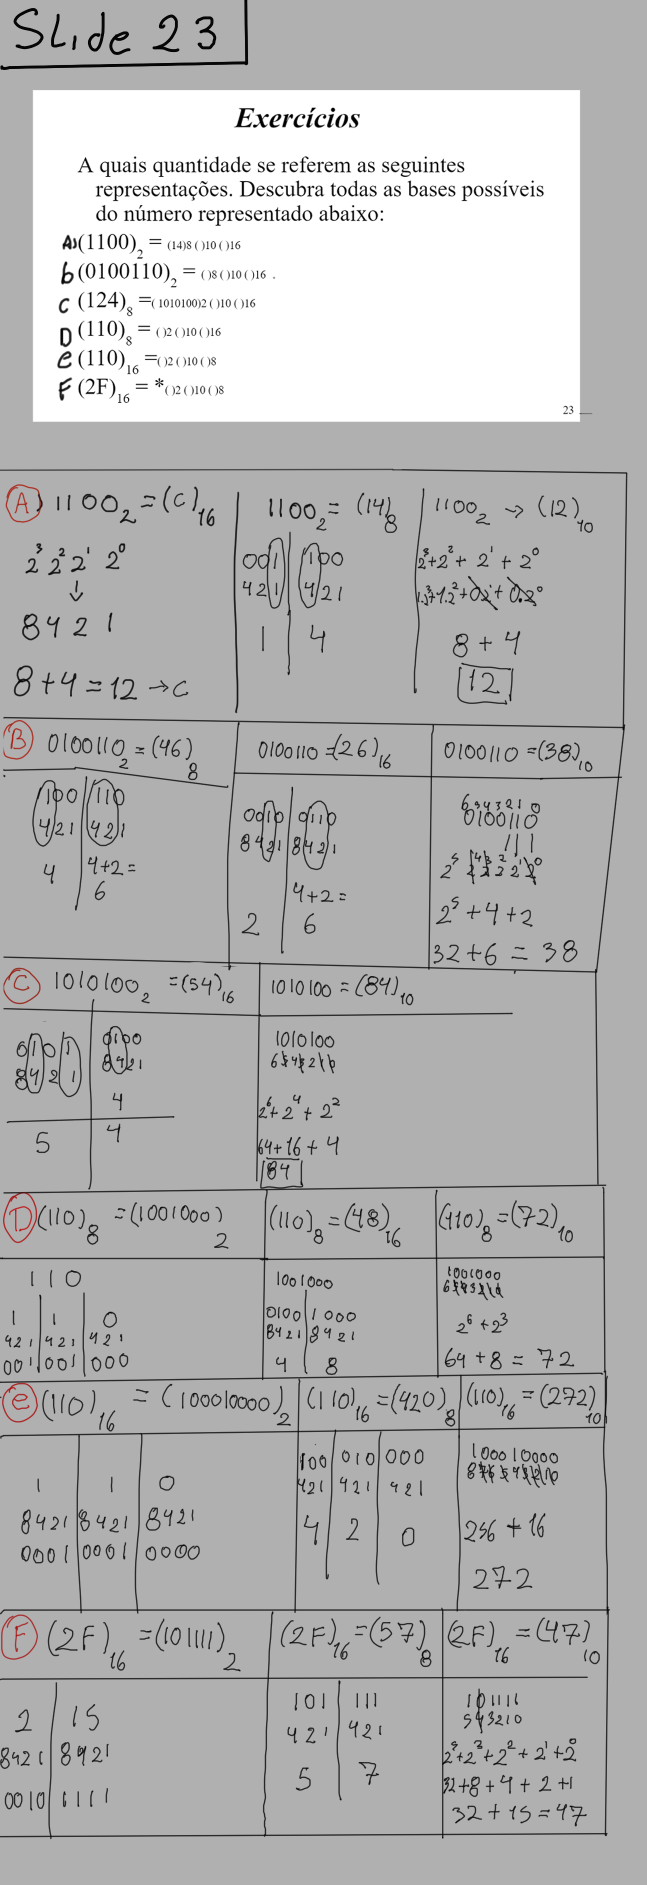 Slide 23
Exercícios
A quais quantidade se referem as seguintes
representações. Descubra todas as bases possíveis
do número representado abaixo:
A) (1100)2 = (14)8 ( )10 ( )16
b (0100110)2 = ( )8 ( )10 ( )16 .
C (124)8 =( 1010100)2 ( )10 ( )16
D (110)8 = ( )2 ( )10 ( )16
e (110)16 =( )2 ( )10 ( )8
F (2F)16 = *( )2 ( )10 ( )8
23
A) 11002 = (C)16
2³ 2² 2¹ 2⁰
↓
8 4 2 1
8+4=12 → C
11002 = (14)8
001 100
421 421
1 4
11002 → (12)10
2³+2²+ 2¹ + 2⁰
1.2³+1.2²+0.2¹+ 0.2⁰
8 + 4
12
B 01001102 = (46)8
100 110
421 421
4 4+2=
6
0100110 =(26)16
0010 0110
8421 8421
4+2=
2 6
0100110 =(38)10
6543210
0100110
2⁵ 2⁴ 2³ 2² 2¹ 2⁰
2⁵ + 4 + 2
32+6 = 38
C 10101002 = (54)16
0101 0100
8421 8421
4
5 4
1010100 = (84)10
1010100
6543210
2⁶+2⁴+ 2²
64+16 + 4
84
D (110)8 = (1001000)2
1 1 0
1 1 0
421 421 421
001 001 000
(110)8 = (48)16
1001000
0100 1000
8421 8421
4 8
(110)8 = (72)10
1001000
6543210
2⁶ + 2³
64 + 8 = 72
e (110)16 = (100010000)2
1 1 0
8421 8421 8421
0001 0001 0000
(110)16 = (420)8
100 010 000
421 421 421
4 2 0
(110)16 = (272)10
100010000
876543210
256 + 16
272
F (2F)16 = (101111)2
2 15
8421 8421
0010 1111
(2F)16 = (57)8
101 111
421 421
5 7
(2F)16 = (47)10
101111
543210
2⁵+2³+2²+2¹+2⁰
32+8+4+2+1
32+15=47